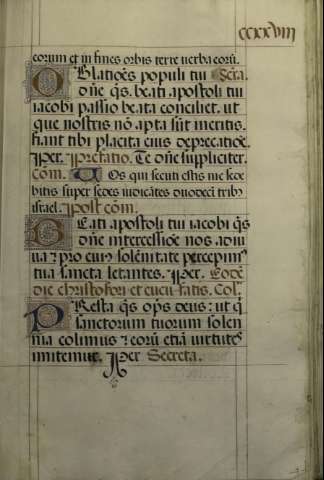 ccxxviii
corum et in fines orbis terre uerba corũ.
OBlatiões populi tui Secreta.
dñe q̃s. beati apostoli tui
iacobi passio beata conciliet. ut
que nostris nõ apta sũt meritis.
fiant tibi placita eius deprecatiõe.
Per. Prefatio. Te dñe suppliciter.
cõm. Uos qui secuti estis me sede
bitis super sedes iudicãtes duodecĩ tribꝰ
israel. Post cõm.
BEati apostoli tui iacobi q̃s
dñe intercessiõe nos adiu
ua: pro cuiꝰ solẽnitate percepimꝰ
tua sancta letantes. Per. Eodẽ
die christofori et cucufatis. Col.
PResta q̃s op̃s deus: ut q̃
sanctorum tuorum solen
nia colimus: eorũ etiã uirtutes
imitemur. Per Secreta.